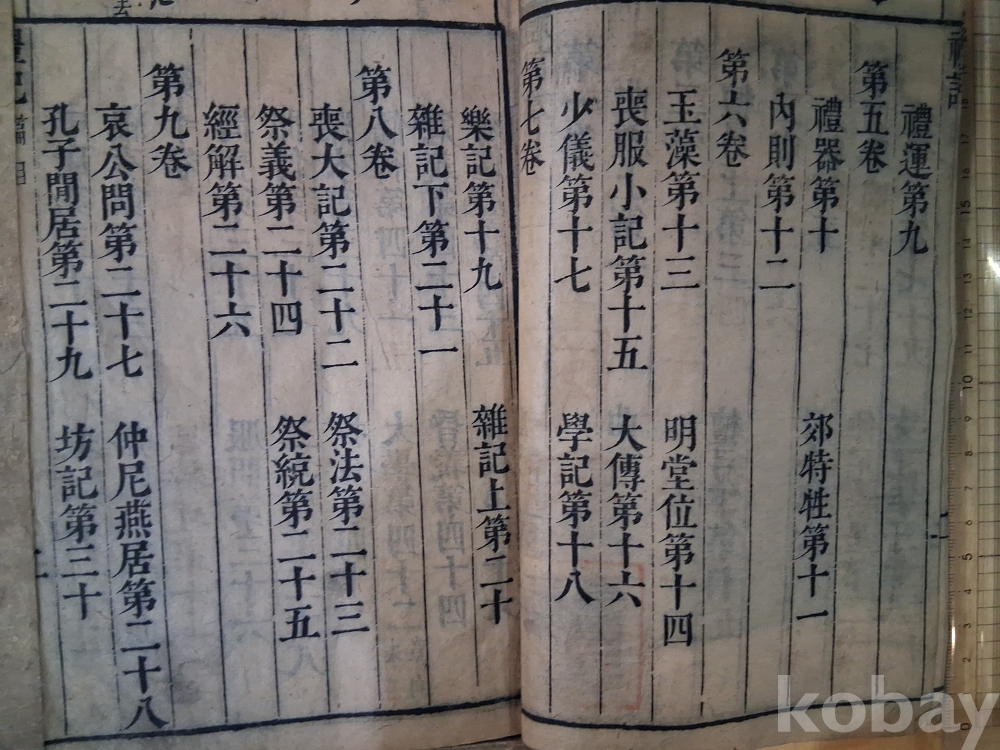 禮運第九
第五卷
禮器第十 郊特牲第十一
內則第十二
第六卷
玉藻第十三 明堂位第十四
喪服小記第十五 大傳第十六
少儀第十七 學記第十八
第七卷
樂記第十九 雜記上第二十
雜記下第二十一
第八卷
喪大記第二十二 祭法第二十三
祭義第二十四 祭統第二十五
經解第二十六
第九卷
哀公問第二十七 仲尼燕居第二十八
孔子閒居第二十九 坊記第三十
kobay